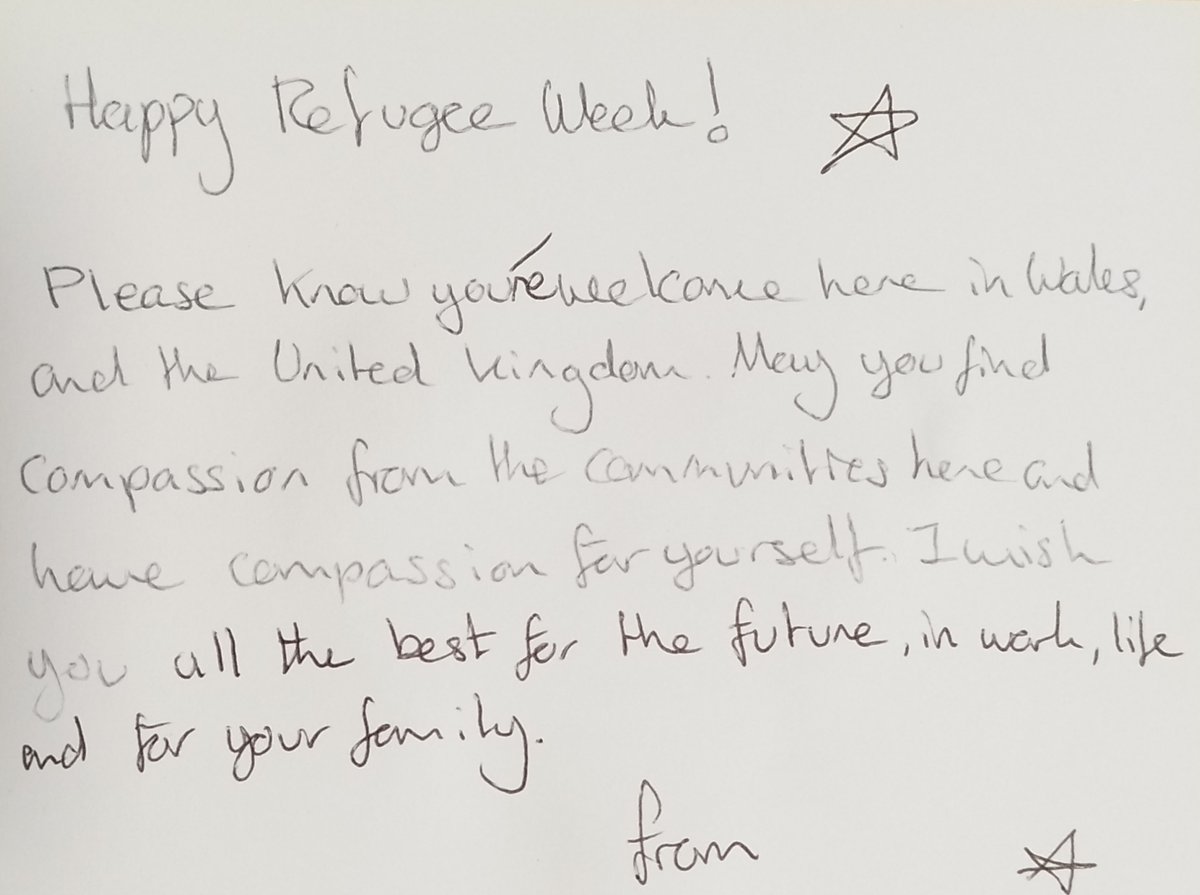 Happy Refugee Week!
Please know you're welcome here in Wales,
and the United Kingdom. May you find
compassion from the communities here and
have compassion for yourself. I wish
you all the best for the future, in work, life
and for your family.
from